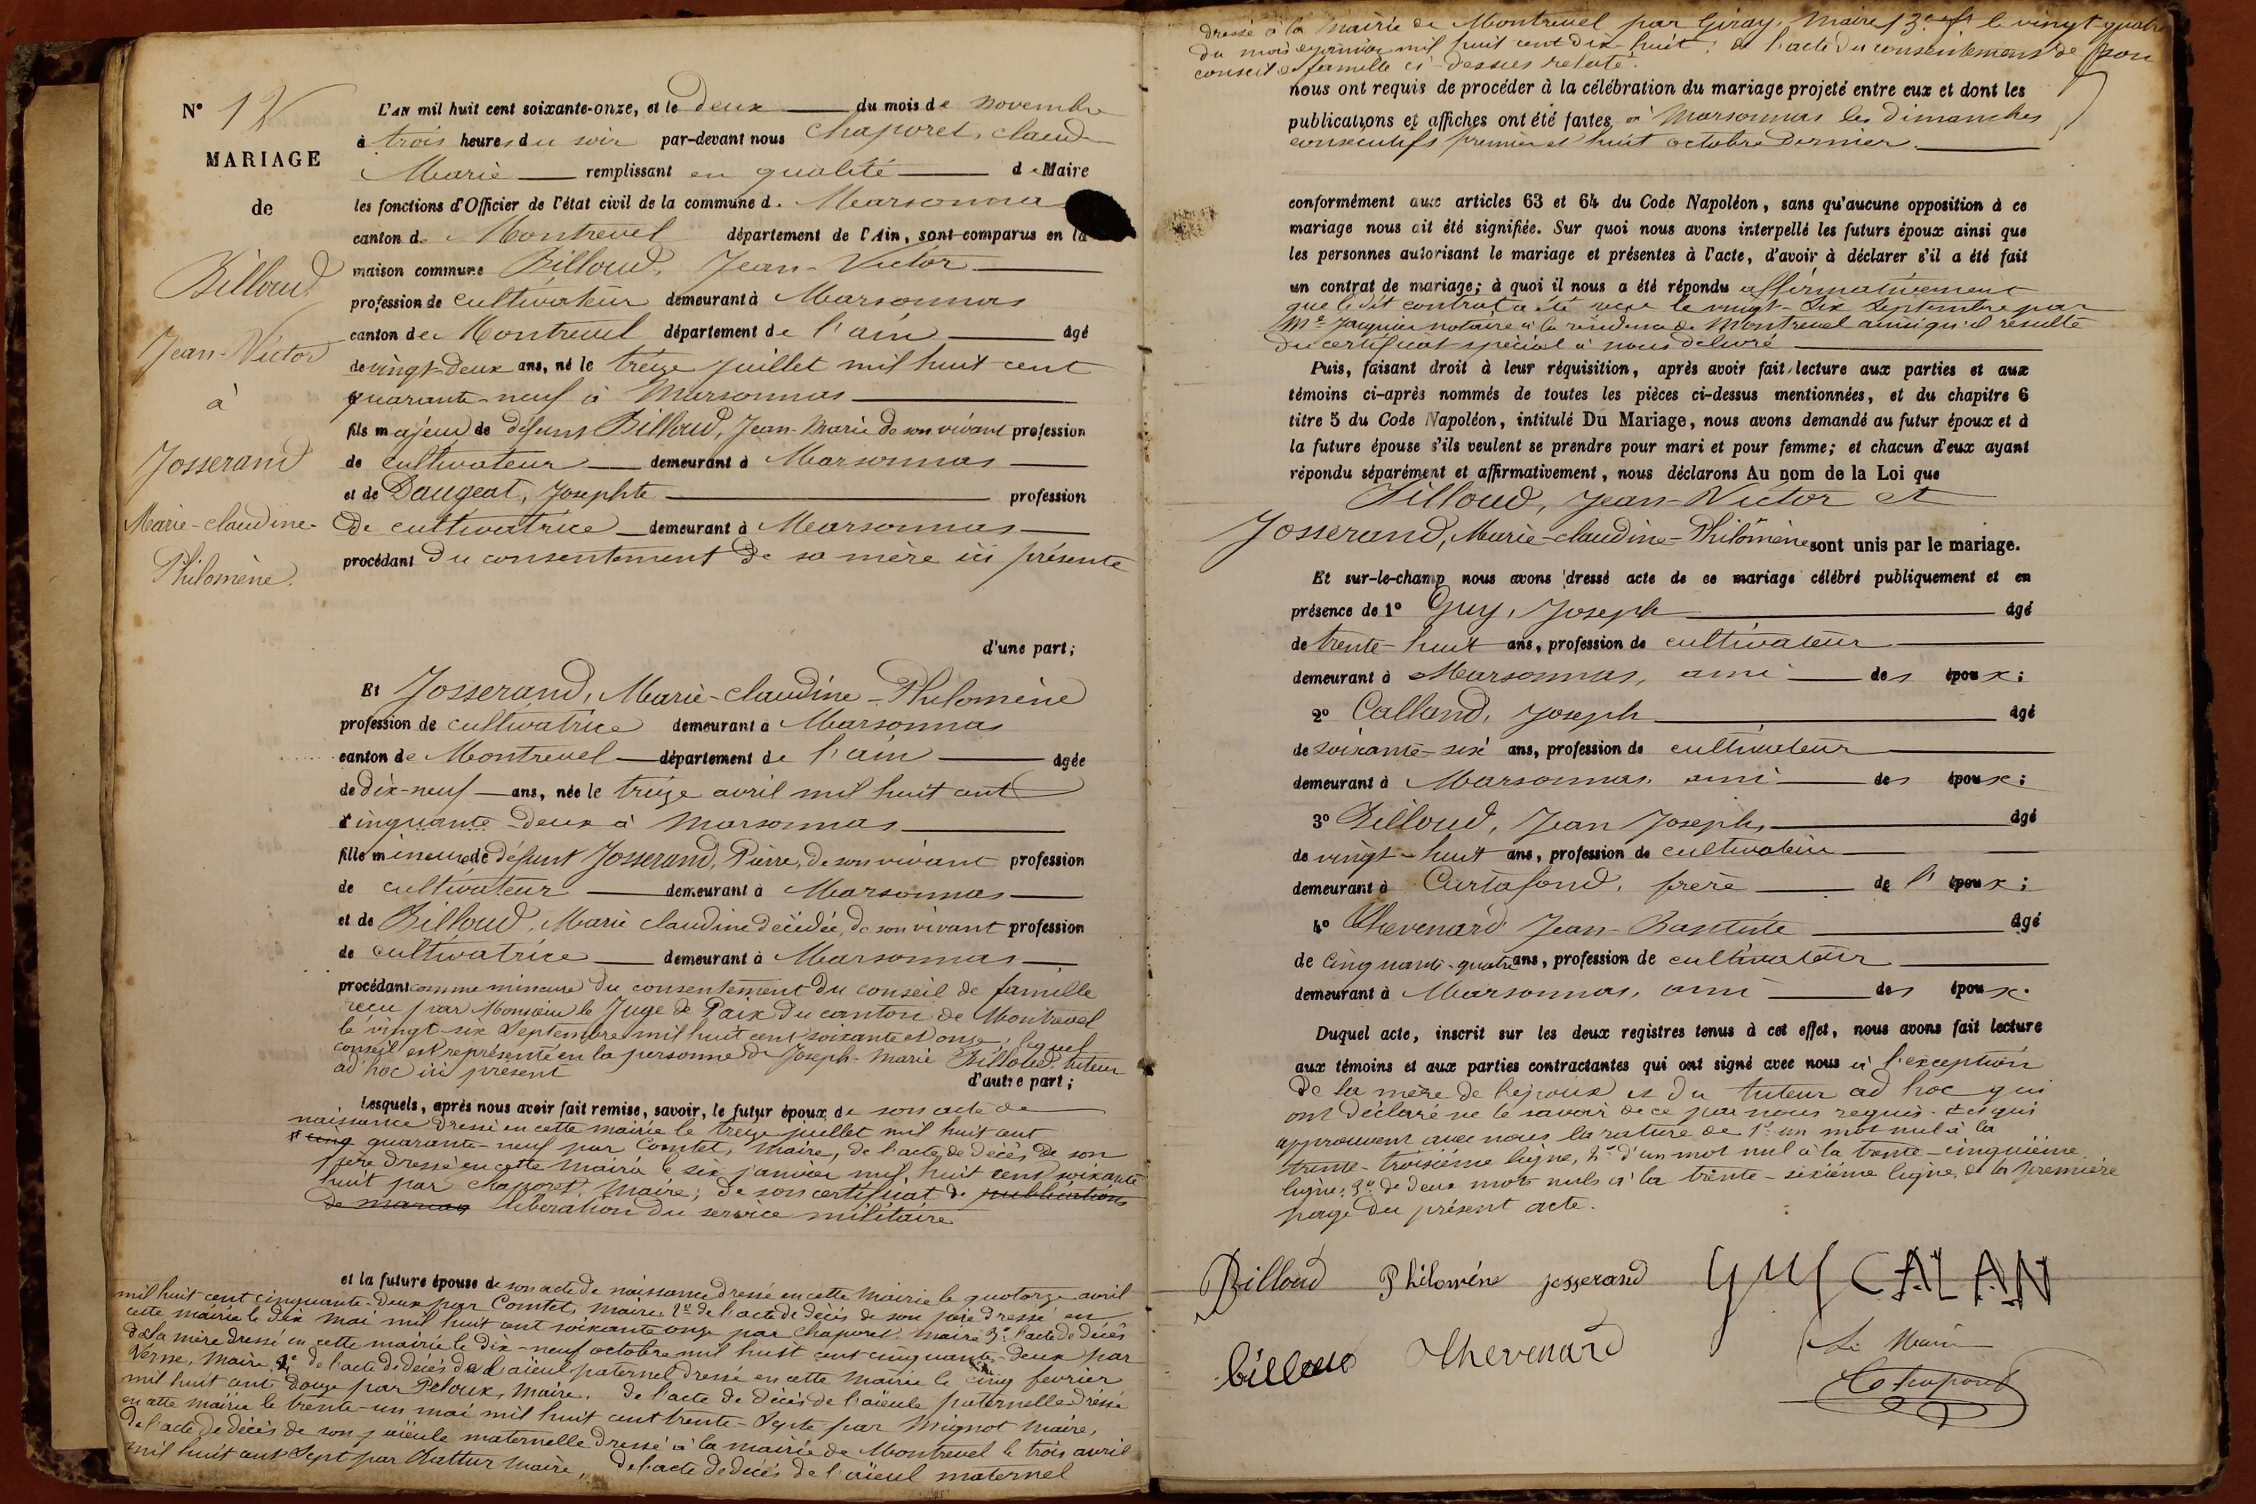 N° 12
MARIAGE
de
Billoud
Jean-Victor
à
Josserand
Marie-claudine-
Philomène.
L'AN mil huit cent soixante-onze, et le deux du mois de novembre
à trois heures du soir par-devant nous Chaporet, claude
Marie remplissant en qualité de Maire
les fonctions d'Officier de l'état civil de la commune d. Marsonnas
canton d. Montrevel département de l'Ain, sont comparus en la
maison commune Billoud, Jean-Victor
profession de cultivateur demeurant à Marsonnas
canton de Montrevel département de l'ain âgé
de vingt-deux ans, né le treize juillet mil huit cent
quarante-neuf à Marsonnas
fils majeur de défunt Billoud, Jean-Marie de son vivant profession
de cultivateur demeurant à Marsonnas
et de Daugeat, Josephte profession
de cultivatrice demeurant à Marsonnas
procédant du consentement de sa mère ici présente
d'une part;
Et Josserand, Marie-claudine-Philomène
profession de cultivatrice demeurant à Marsonnas
canton de Montrevel département de l'ain âgée
de dix-neuf ans, née le treize avril mil huit cent
cinquante-deux à Marsonnas
fille mineure de défunt Josserand, Pierre, de son vivant profession
de cultivateur demeurant à Marsonnas
et de Billoud, Marie claudine décédée, de son vivant profession
de cultivatrice demeurant à Marsonnas
procédant comme mineure du consentement du conseil de famille
reçu par Monsieur le Juge de Paix du canton de Montrevel
le vingt-six Septembre mil huit cent soixante et onze, lequel
conseil est représenté en la personne de Joseph-Marie Billoud, tuteur
ad hoc ici présent
d'autre part;
Lesquels, après nous avoir fait remise, savoir, le futur époux de son acte de
naissance dressé en cette mairie le treize juillet mil huit cent
cinq quarante-neuf par Comtet, Maire, de l'acte de décès de son
père dressé en cette Mairie le six janvier mil huit cent soixante
huit par Chaporet, Maire; de son certificat de publications
de mariag libération du service militaire
et la future épouse de son acte de naissance dressé en cette Mairie le quatorze avril
mil huit cent cinquante-deux par Comtet, Maire, 2° de l'acte de décès de son père dressé en
cette mairie le dix mai mil huit cent soixante onze par Chaporet, Maire 3° l'acte de décès
de la mère dressé en cette mairie le dix-neuf octobre mil huit cent cinquante-deux par
Verne, Maire, 4° de l'acte de décès de l'aïeul paternel dressé en cette Mairie le cinq février
mil huit cent douze par Peloux, Maire, de l'acte de décès de l'aïeule paternelle dressé
en cette mairie le trente-un mai mil huit cent trente-Septe par Mignot Maire,
de l'acte de décès de son aïeule maternelle dressé à la mairie de Montrevel le trois avril
mil huit cent Sept par Maire, de l'acte de décès de l'aïeul maternel
dressé à la mairie de Montrevel par Giray, Maire, le vingt-quatre
du mois de janvier mil huit cent dix-huit; de l'acte du consentement de son
conseil de famille ci-dessus relaté.
nous ont requis de procéder à la célébration du mariage projeté entre eux et dont les
publications et affiches ont été faites à Marsonnas les dimanches
consécutifs premier et huit octobre dernier.
conformément aux articles 63 et 64 du Code Napoléon, sans qu'aucune opposition à ce
mariage nous ait été signifiée. Sur quoi nous avons interpellé les futurs époux ainsi que
les personnes autorisant le mariage et présentes à l'acte, d'avoir à déclarer s'il a été fait
un contrat de mariage; à quoi il nous a été répondu affirmativement
que le dit contrat a été reçu le vingt-six Septembre par
Me Jacquier notaire à la résidence de Montrevel ainsi qu'il résulte
du certificat spécial à nous délivré
Puis, faisant droit à leur réquisition, après avoir fait lecture aux parties et aux
témoins ci-après nommés de toutes les pièces ci-dessus mentionnées, et du chapitre 6
titre 5 du Code Napoléon, intitulé Du Mariage, nous avons demandé au futur époux et à
la future épouse s'ils veulent se prendre pour mari et pour femme; et chacun d'eux ayant
répondu séparément et affirmativement, nous déclarons Au nom de la Loi que
Billoud, Jean-Victor et
Josserand, Marie-claudine-Philomène sont unis par le mariage.
Et sur-le-champ nous avons dressé acte de ce mariage célébré publiquement et en
présence de 1° Guy, Joseph âgé
de trente-huit ans, profession de cultivateur
demeurant à Marsonnas, ami des époux;
2° Calland, Joseph âgé
de soixante-six ans, profession de cultivateur
demeurant à Marsonnas, ami des époux;
3° Billoud, Jean Joseph, âgé
de vingt-huit ans, profession de cultivateur
demeurant à Curtafond, frère de l'époux;
4° Thevenard Jean-Baptiste âgé
de cinquante-quatre ans, profession de cultivateur
demeurant à Marsonnas, ami des époux.
Duquel acte, inscrit sur les deux registres tenus à cet effet, nous avons fait lecture
aux témoins et aux parties contractantes qui ont signé avec nous à l'exception
de la mère de l'époux et du tuteur ad hoc qui
ont déclaré ne le savoir de ce par nous requis. et qui
approuvent avec nous la rature de 1° un mot nul à la
trente-troisième ligne, 2° d'un mot nul à la trente-cinquième
ligne, 3° de deux mots nuls à la trente-sixième ligne de la première
page du présent acte.
Billoud Philomène josserand GUY CALAN
billoud Thevenard
Le Maire
Chaporet